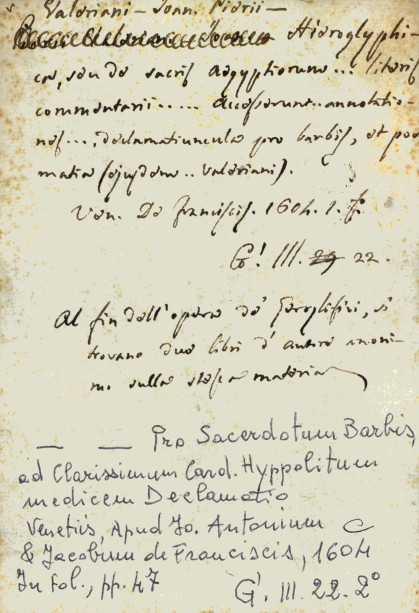 Valeriani – Joan. Pierii –
Hieroglyphi-
ca, seu de sacris Aegyptiorum... literis
commentarii..... Accesserunt.. annotatio-
nes..., declamatiuncula pro barbis, et poe
matia (ejusdem.. Valeriani).
Ven. De Franciscis. 1604. 1. f.
G! III. 29 22.
Al fin dell'opera de' Geroglifici, si
trovano due libri d'autore anoni-
mo sulla stessa materia
— — Pro Sacerdotum Barbis,
ad Clarissimum Card. Hyppolitum
medicem Declamatio
Venetiis, Apud Jo. Antonium
& Jacobum de Franciscis, 1604
In fol., pp. 47
G! III. 22. 2º